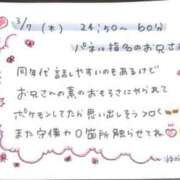 3/7 (木) 24:50〜60分
パネル指名のお兄さん
同年代 話しやすいのもあるけど
お兄さんの素のおもろさにやられて
ポケモンしてたら思い出しそう
また守備力0箇所触らせてね